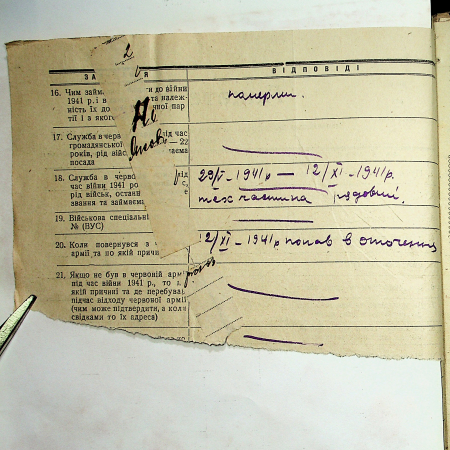 2
ЗА Я ВІДПОВІДІ
16. Чим займ ти до війни
1941 р. і в та належ-
ність їх до ної пар
тії і з якого
померли.
17. Служба в черв ід час
громадянської — 22
років, рід війс аєма
посада
18. Служба в черво рід
час війни 1941 ро
рід військ, остан
вання та займаєм
29/VI – 1941 р — 12/XI – 1941 р.
тех частина рядовий.
19. Військова спеціальні
№ (ВУС)
20. Коли повернувся з ч
армії та по якій причин
12/XI – 1941 р попав в оточення
21. Якщо не був в червоній армі
під час війни 1941 р., то
якій причині та де перебував
підчас відходу червоної армії
(чим може підтвердити, а коли
свідками то їх адреса)